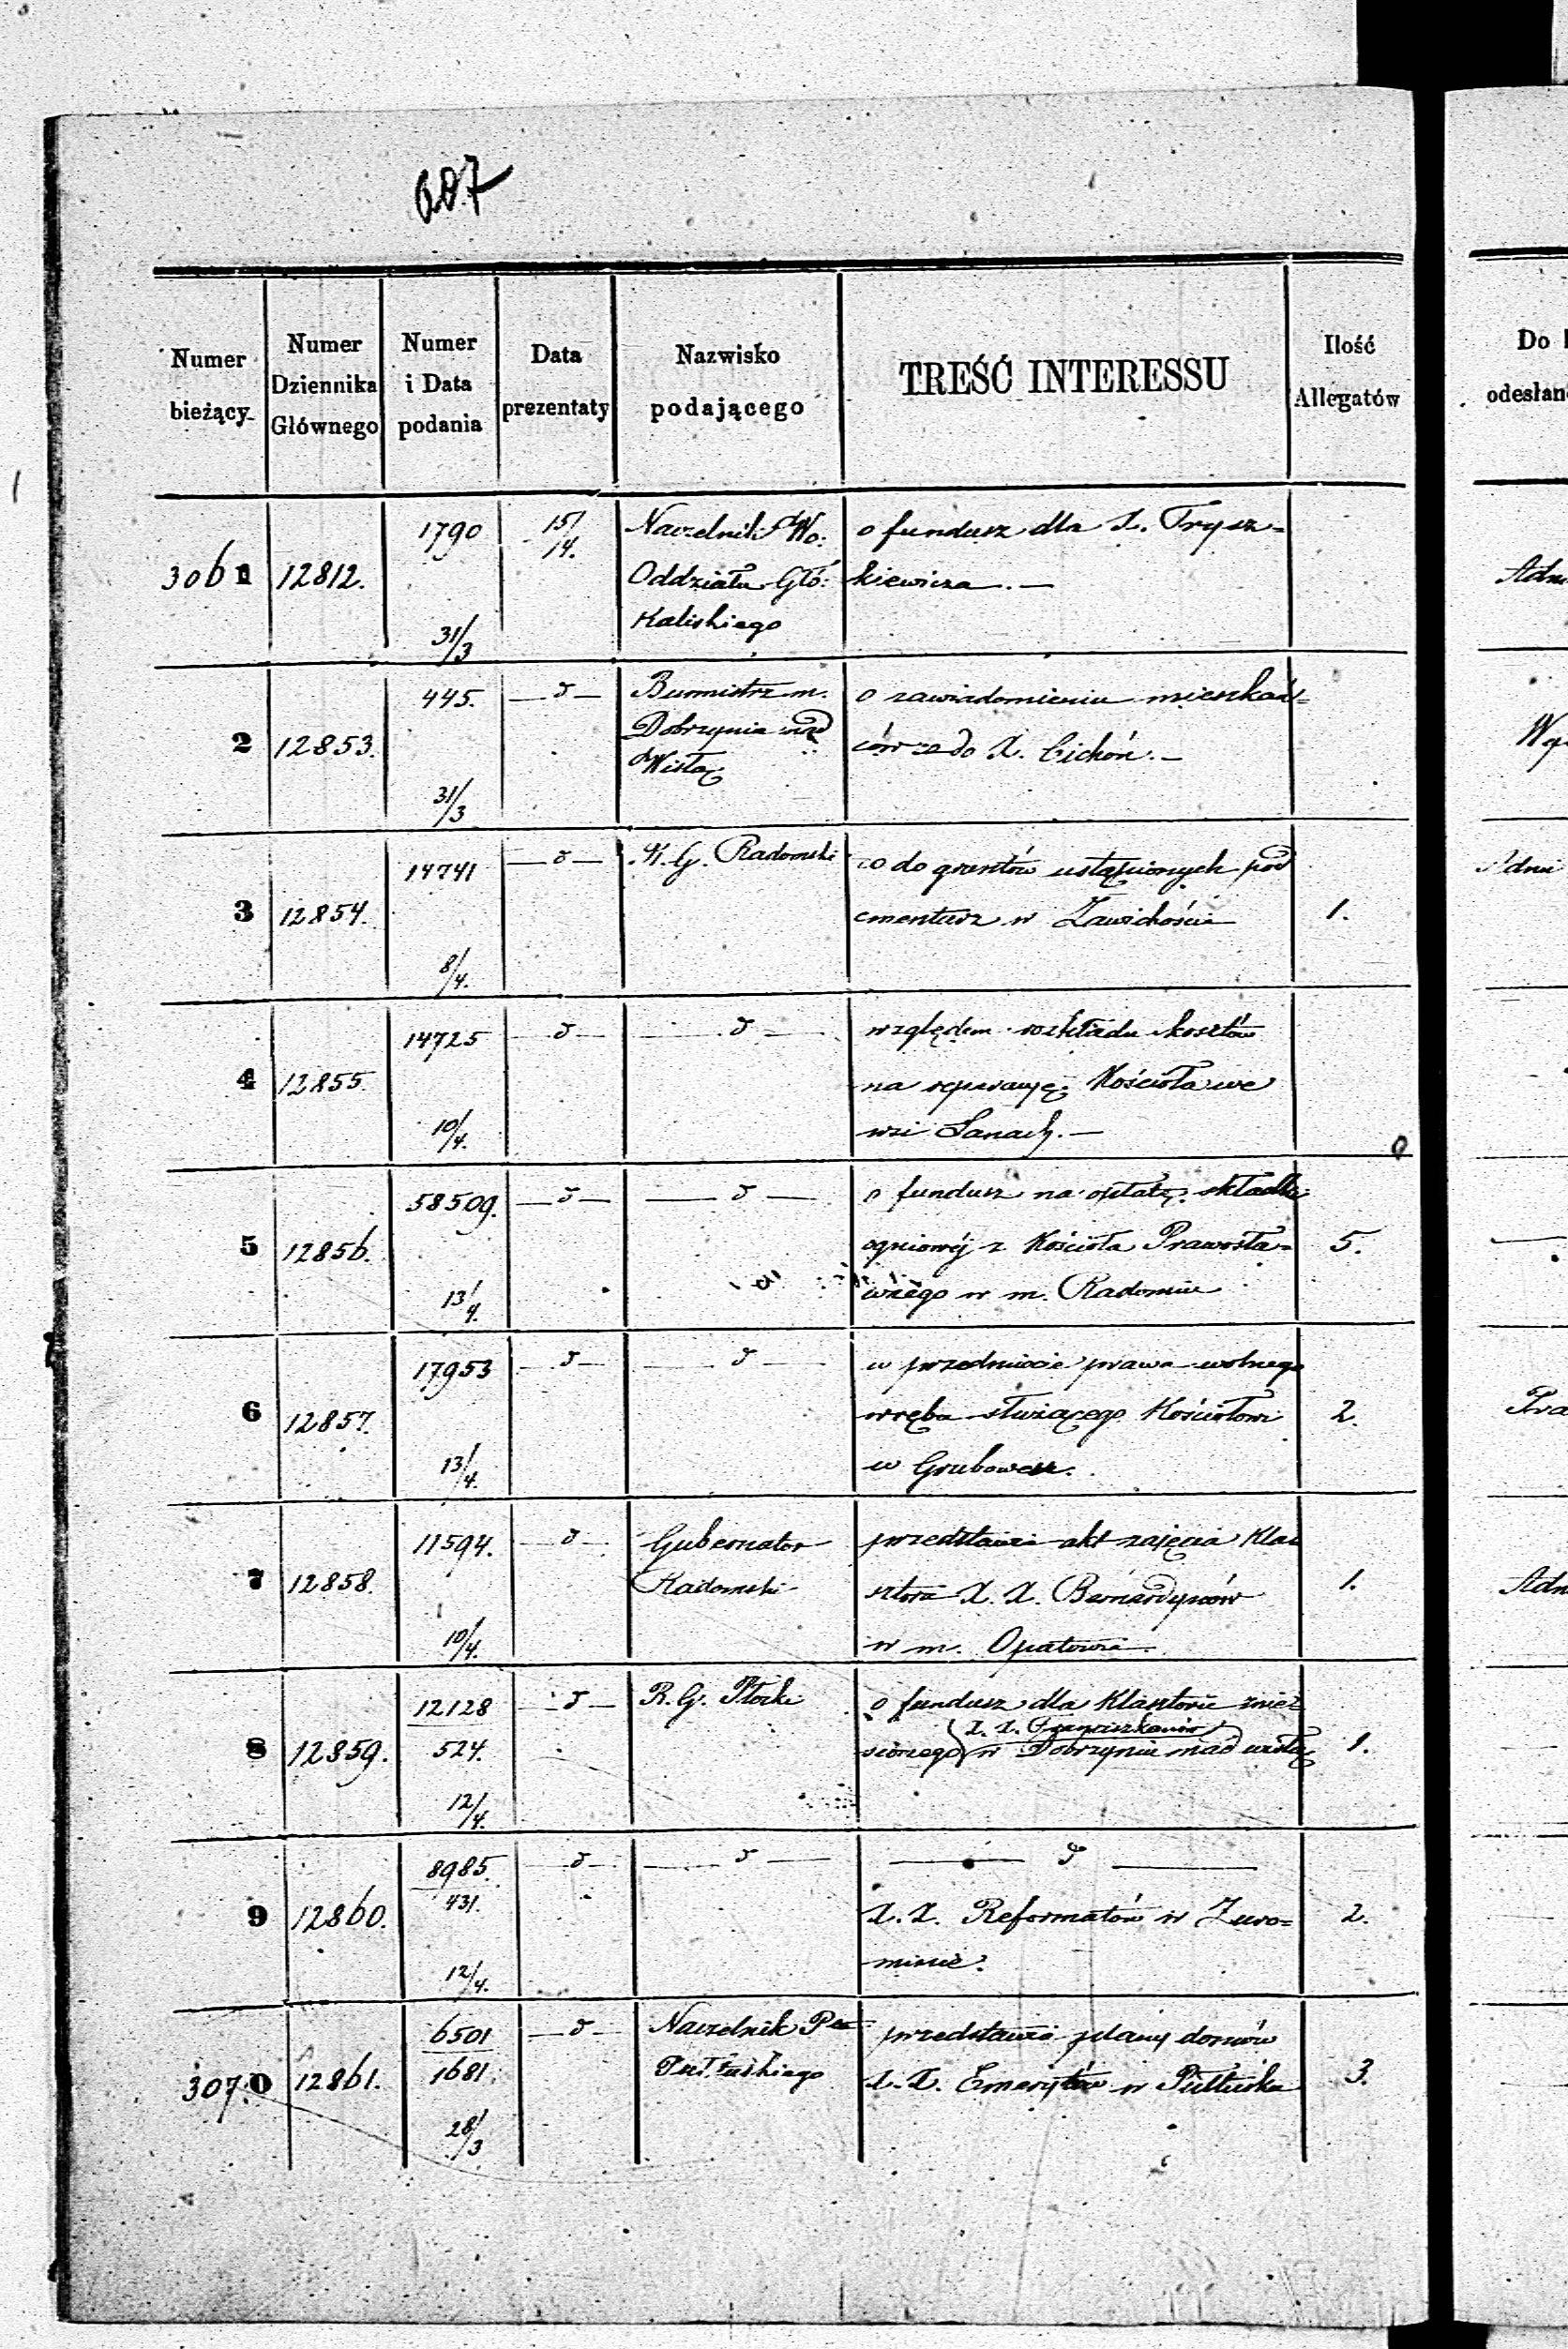 207
Numer bieżący
Numer Dziennika Głównego
Numer i Data podania
Data prezentaty
Nazwisko podającego
TREŚĆ INTERESSU
Ilość Allegatów
Do
odesłan
3061 12812. 1790 31/3 15/14.
Naczelnik Wo:
Oddziału Głó:
Kaliskiego
o fundusz dla X. Trysz=
kiewicza. —
Adm
2 12853. 445. 31/3 — d —
Burmistrz m.
Dobrzynia nad
Wisłą
o zawiadomieniu mieszkań=
ców zado X. Cichoń. —
3 12854. 14741 8/4. — d —
K. G. Radomski
co do gruntów ustąpionych pod
cmentarz w Zawichoście
1.
4 12855. 14725 10/4. — d —
— d —
względem rozkładu kosztów
na reperacyę Kościoła we
wsi
5 12856. 58509. 13/4. — d —
— d —
o fundusz na opłatę składki
ogniowéj z Kościoła Prawosła=
wnego w m. Radomiu
5.
6 12857. 17953 13/4. — d —
— d —
w przedmiocie prawa wolnego
wrębu służącego Kościołowi
w
2.
7 12858. 11594. 10/4. — d —
Gubernator
Radomski
przedstawia akt zajęcia Kla
sztoru X. X. Bernardynów
w m. Opatowie
1.
Adm
8 12859. 12128 524. 12/4. — d —
R. G. Płocki
o fundusz dla Klasztoru znie
X. X. Franciszkanów
sionego w Dobrzyniu nad Wisłą
1.
9 12860. 8985. 431. 12/4. — d —
— d —
— d —
X. X. Reformatów w Żuro=
minie.
2.
3070 12861. 6501 1681. 28/3 — d —
Naczelnik
Pułtuskiego
przedstawia plany domów
X. X. Emerytów w Pułtusku
3.